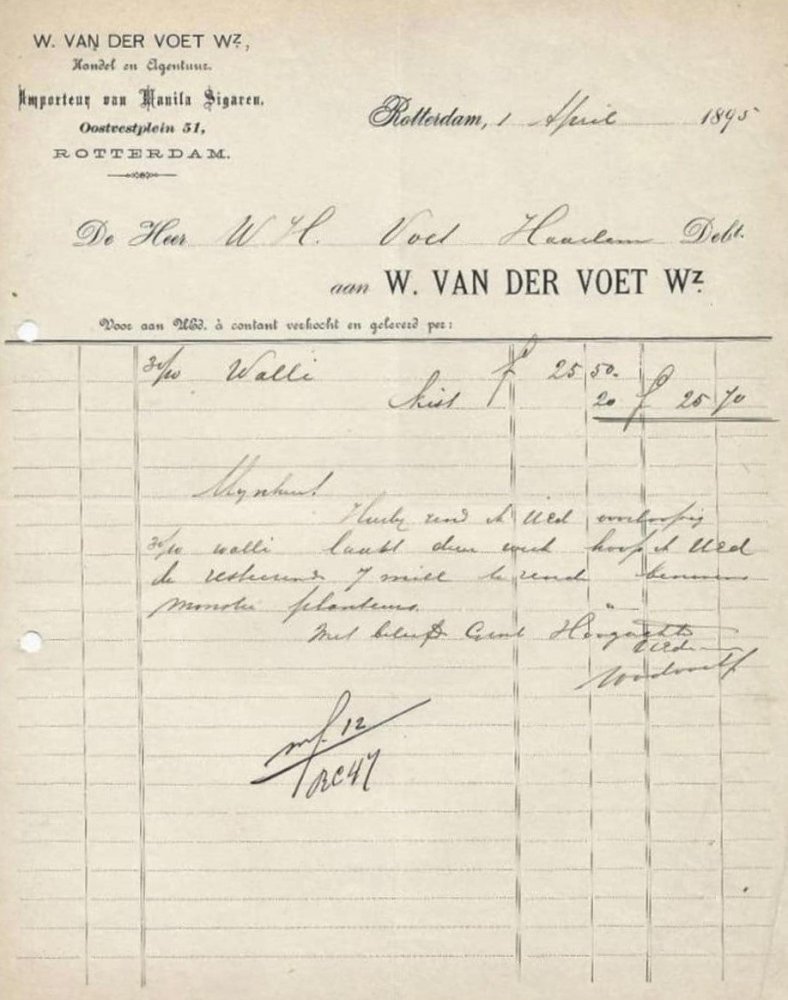 W. VAN DER VOET Wz.,
Handel en Agentuur.
Importeur van Manila Sigaren.
Oostvestplein 51,
ROTTERDAM.
Rotterdam, 1 April 1895
De Heer W. H. Voet Haarlem Debt.
aan W. VAN DER VOET Wz.
Voor aan UEd. à contant verkocht en geleverd per:
30/10 Walli f 25 50.
Kist 20 f 25 70
Mynheer!
Hierby zend ik UEd voorloopig
30/10 walli laatst dezer week hoop ik UEd
de resteerende 7 mille te zenden benevens
monster planteurs.
Met beleefde Groet Hoogachtd
UEdw
mf. 12
RC47